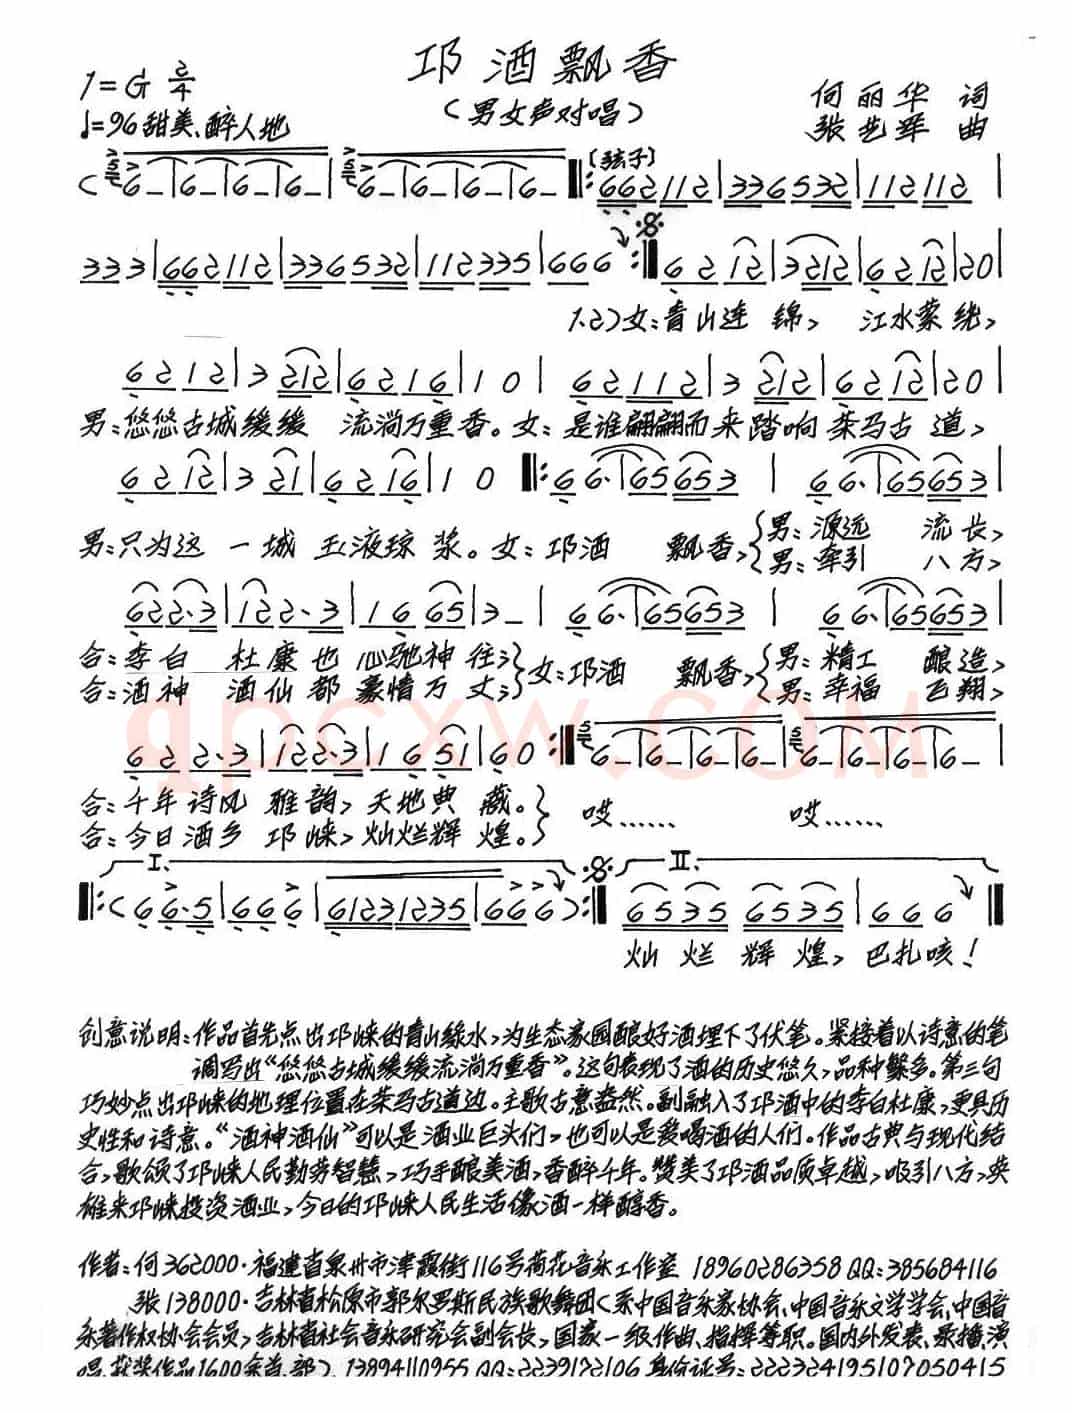 邛酒飘香
(男女声对唱)
1=G 2/4
♩=96 甜美、醉人地
何丽华 词
张艺军 曲
[弦子]
1.2)女:青山连锦, 江水萦绕,
男:悠悠古城缓缓 流淌万重香。女:是谁翩翩而来踏响茶马古道,
男:只为这一城玉液琼浆。女:邛酒 飘香,{男:源远 流长,
男:牵引 八方,
合:李白 杜康也心驰神往;}女:邛酒 飘香,{男:精工 酿造,
合:酒神 酒仙都豪情万丈;} {男:幸福 飞翔,
qpcxw.com
合:千年诗风 雅韵,天地典藏。} 哎…… 哎……
合:今日酒乡 邛崃,灿烂辉煌。}
I. II.
灿烂辉煌,巴扎咳!
创意说明:作品首先点出邛崃的青山绿水,为生态家园酿好酒埋下了伏笔。紧接着以诗意的笔
调写出“悠悠古城缓缓流淌万重香”。这句表现了酒的历史悠久,品种繁多。第三句
巧妙点出邛崃的地理位置在茶马古道边。主歌古意盎然。副融入了邛酒中的李白杜康,更具历
史性和诗意。“酒神酒仙”可以是酒业巨头们,也可以是爱喝酒的人们。作品古典与现代结
合,歌颂了邛崃人民勤劳智慧,巧手酿美酒,香醉千年。赞美了邛酒品质卓越,吸引八方,英
雄来邛崃投资酒业,今日的邛崃人民生活像酒一样醇香。
作者:何362000·福建省泉州市津霞街116号荷花音乐工作室 18960286358 QQ:385684116
张138000·吉林省松原市郭尔罗斯民族歌舞团(系中国音乐家协会、中国音乐文学学会、中国音
乐著作权协会会员,吉林省社会音乐研究会副会长,国家一级作曲、指挥等职。国内外发表、录播、演
唱、获奖作品1600余首、部)、13894110955 QQ:2239172106 身份证号:222324195107050415